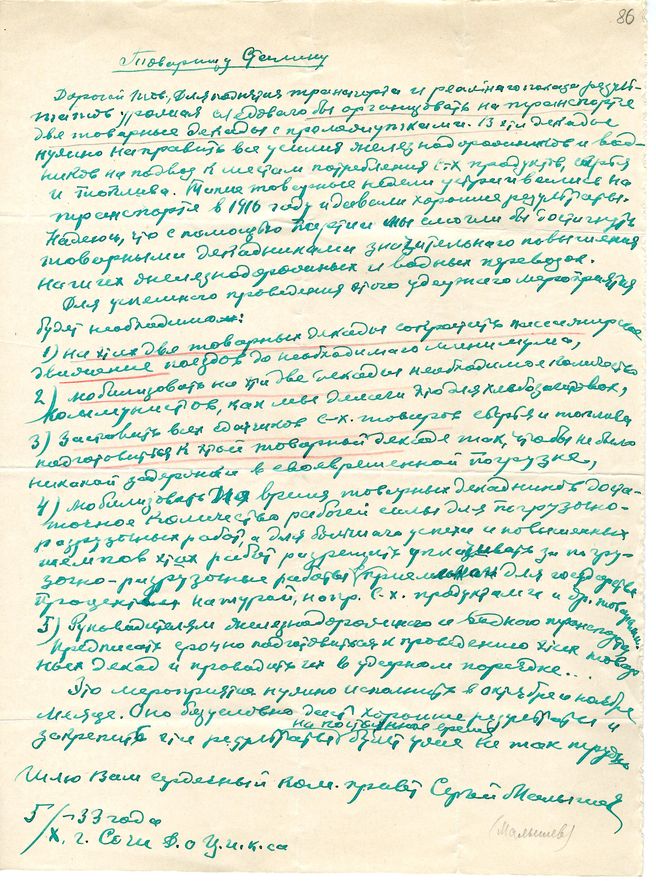 86
Товарищу Сталину
Дорогой тов. Для поднятия транспорта и реального показа резуль-
татов, следовало бы организовать на транспорте
две товарные декады с промежутками. В эти декады
нужно направить все усилия железнодорожников и вод-
ников на подвоз к местам потребления с-х продуктов, сырья
и топлива. Такие товарные недели устраивались на
транспорте в 1916 году и давали хорошие результаты.
Надеюсь, что с помощью партии мы смогли бы достигнуть
товарными декадниками значительного повышения
наших железнодорожных и водных перевозок.
Для успешного проведения этого ударного мероприятия
будет необходимо:
1) на эти две товарных декады сократить пассажирское
движение поездов до необходимого минимума,
2) мобилизовать на эти две декады необходимое количество
коммунистов, как мы делали это для хлебозаготовок,
3) Заставить всех сдатчиков с-х. товаров сырья и топлива
подготовиться к этой товарной декаде так, чтобы не было
никакой задержки в своевременной погрузке,
4) мобилизовать на время товарных декадников доста-
точное количество рабочей силы для погрузочно-
разгрузочных работ, а для большего успеха и повышенных
темпов этих работ разрешить уплачивать за погру-
зочно-разгрузочные работы приемлемым для государства
процентом натурой, напр. с-х. продуктами и др. товарами.
5) Руководителям железнодорожного и водного транспорта
предписать срочно подготовиться к проведению этих товар-
ных декад и проводить их в ударном порядке...
Это мероприятие нужно исполнить в октябре и ноябре
месяце. Оно безусловно даст хорошие результаты и
закрепить эти результаты на постоянное время будет уже не так трудно
Шлю Вам сердечный ком. привет Сергей Малышев
(Малышев)
5/X-33 года
г. Сочи Д. о Ц.и.к.са